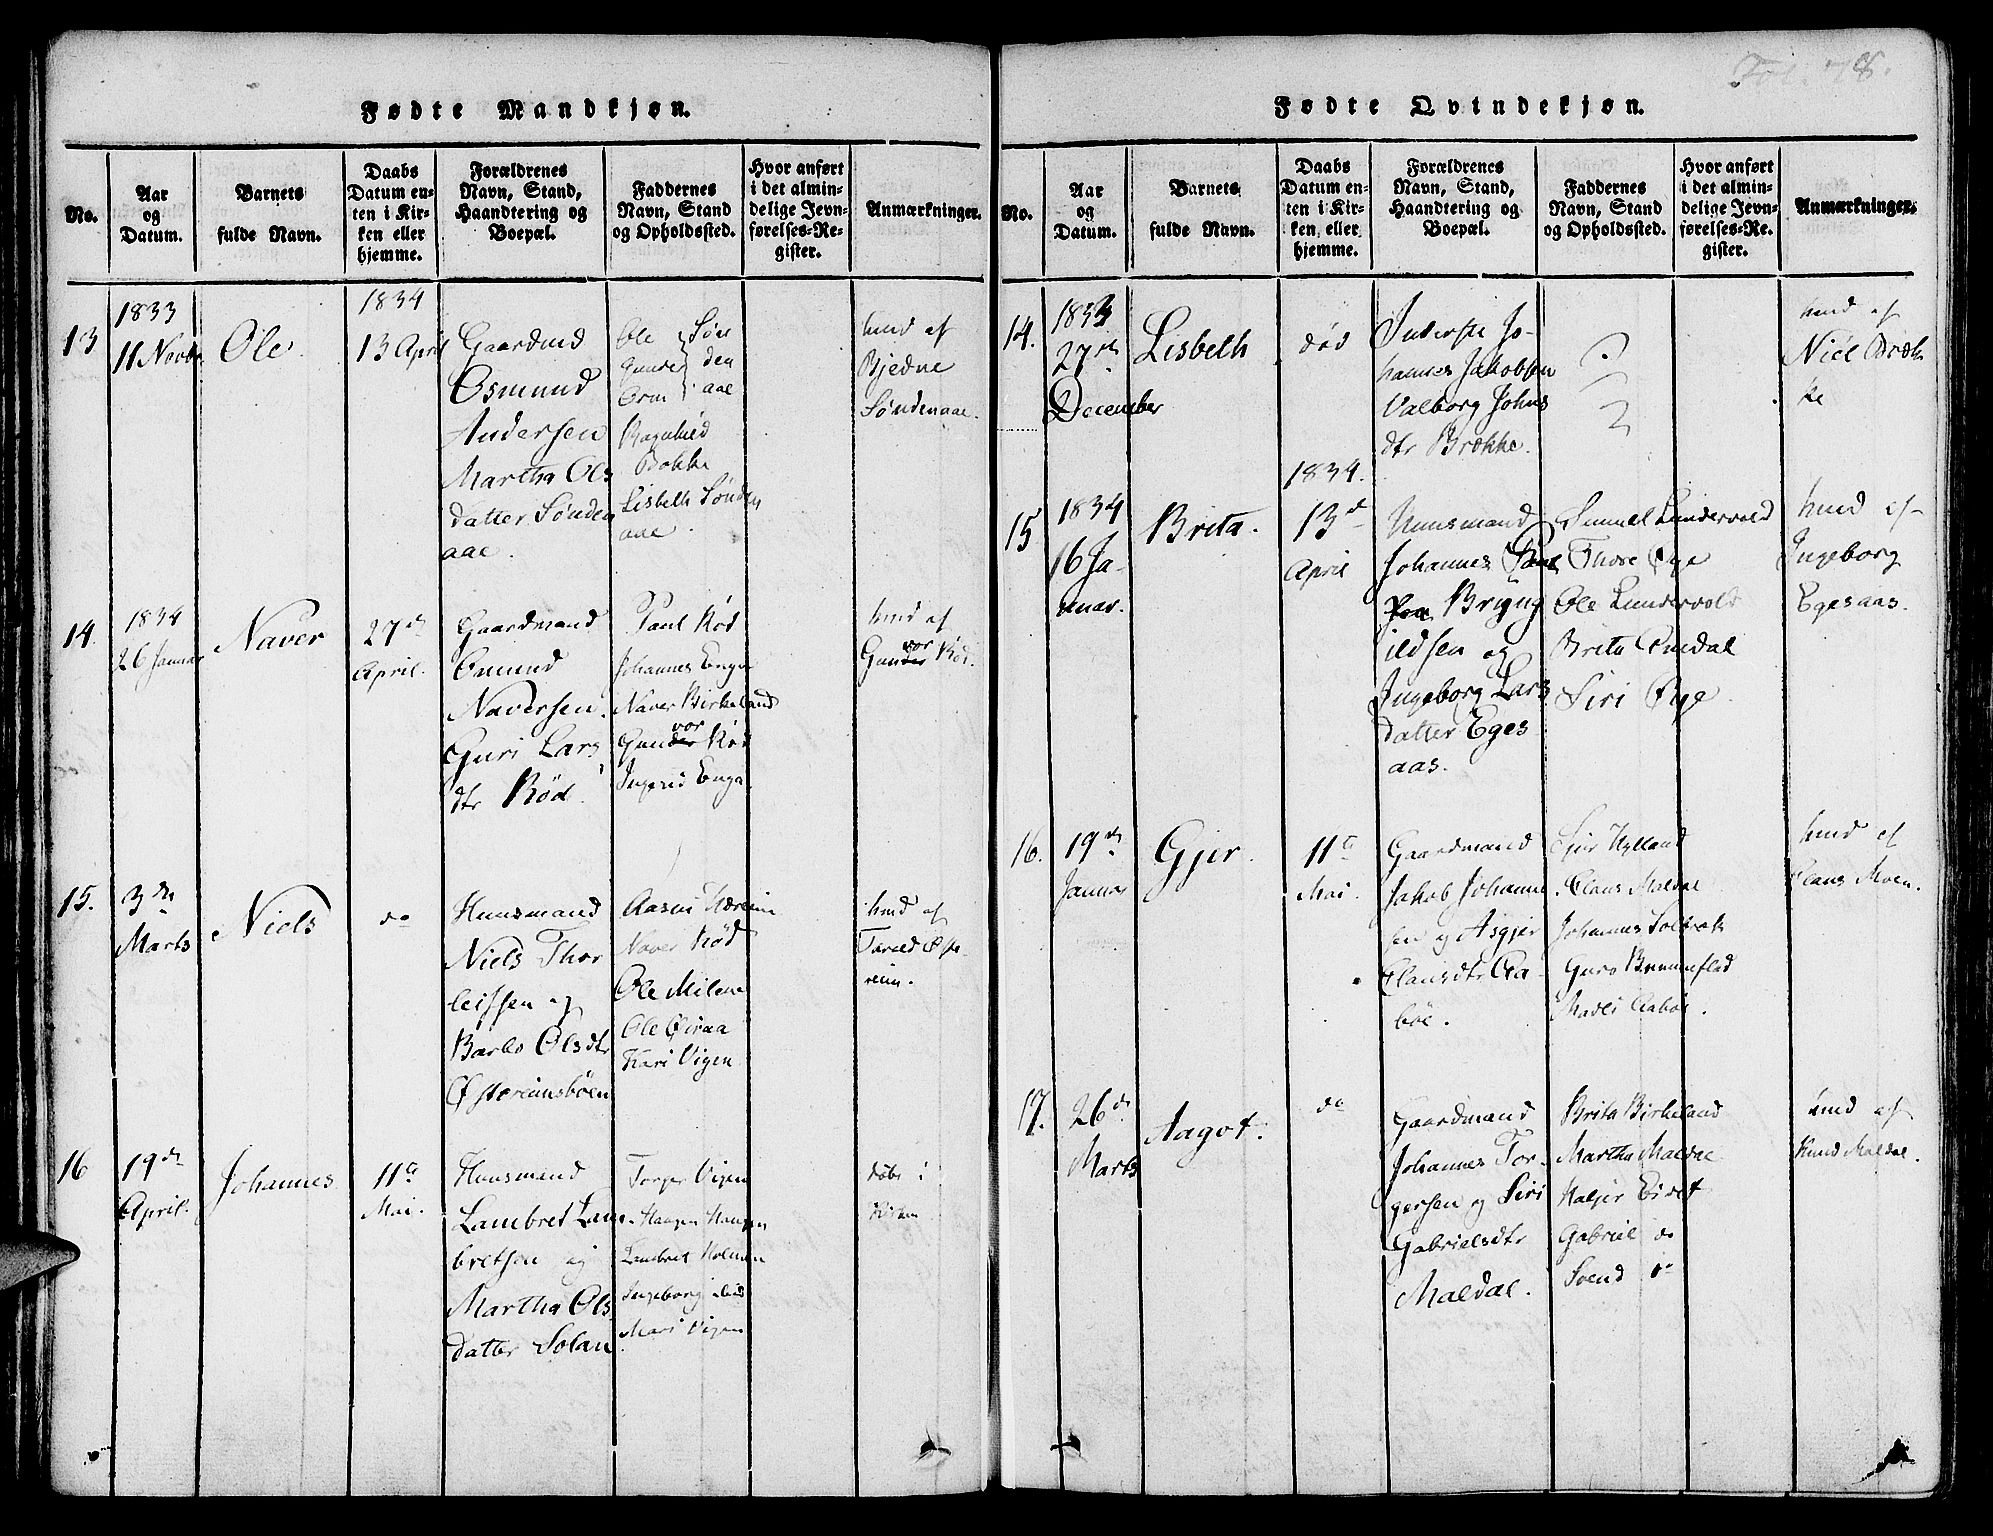 Fol. 78.
Fødte Mandkjøn.
No.
Aar
og
Datum.
Barnets
fulde Navn.
Daabs
Datum en-
ten i Kir-
ken eller
hjemme.
Forældrenes
Navn, Stand,
Haandtering og
Boepæl.
Faddernes
Navn, Stand
og Opholdssted.
Hvor anført
i det almin-
delige Jevn-
førelses-Re-
gister.
Anmærkninger.
13
1833
11 Novbr.
Ole.
1834
13 April
Gaardmd
Osmund
Andersen
Martha Ols
datter Sønden
aae.
Ole
Gunder
Orm
Søn
den
aae
Ragnhild
Bakke
Lisbeth Sønden
aae.
hmd af
Bjedne
Søndenaae.
14.
1834
26 Januar
Naver
27de
April.
Gaardmand
Omund
Naversen.
Guri Lars
dtr Rød.
Paul Rød
Johannes Enga
Naver Birkeland
vor
Gunder Rød
Ingerid Enga
hmd af
vor
Gunder Rød.
15.
3die
Marts
Niels
do
Huusmand
Niels Thor
leifsen og
Barbo Olsdtr
Østereimsbøen
Naver Rød
Ole Milene
Ole
Kari Vigen
hmd af
reim.
16
19de
April.
Johannes
11te
Mai.
Huusmand
Lambret Lam-
bretsen og
Martha Ols
datter Solan
Torger Vigen
Haagen Haagen
Lambret Holmen
Ingeborg ibid
Mari Vigen
døbt i
Kirken
Fødte Qvindekjøn.
No.
Aar
og
Datum.
Barnets
fulde Navn.
Daabs
Datum en-
ten i Kir-
ken eller
hjemme.
Forældrenes
Navn, Stand,
Haandtering og
Boepæl.
Faddernes
Navn, Stand
og Opholdssted.
Hvor anført
i det almin-
delige Jevn-
førelses-Re-
gister.
Anmærkninger.
14.
1833
27de
December
Lisbeth
død
Inderste Jo-
hannes Jakobsen
Valborg Johns
dtr Brække.
?
?
hmd af
Niel Bræk
ke
15
1834
16 Ja-
nuar.
Brita.
1834.
13de
April
Huusmand
Johannes
Bryng
ildsen og
Ingeborg Lars
datter Eges
aas.
Samuel Lundervold
Thore Øye
Ole Lundervold
Brita
Siri Øye
hmd af
Ingeborg
Egesaas.
16.
19de
Januar
Gjer.
11te
Mai.
Gaardmand
Jakob Johanne
sen og Asgjer
Clausdtr Aa-
bøe.
Sjur Hylland
Claus Maldal
Johannes
Guro
Madli Aabøe.
hmd af
Claus Moen.
17.
26de
Marts
Aagot.
do
Gaardmand
Johannes Tor-
gersen og Siri
Gabrielsdtr
Maldal.
Brita Birkeland
Martha Maldal
Gabriel do
Svend do
hmd af
Knud Maldal.